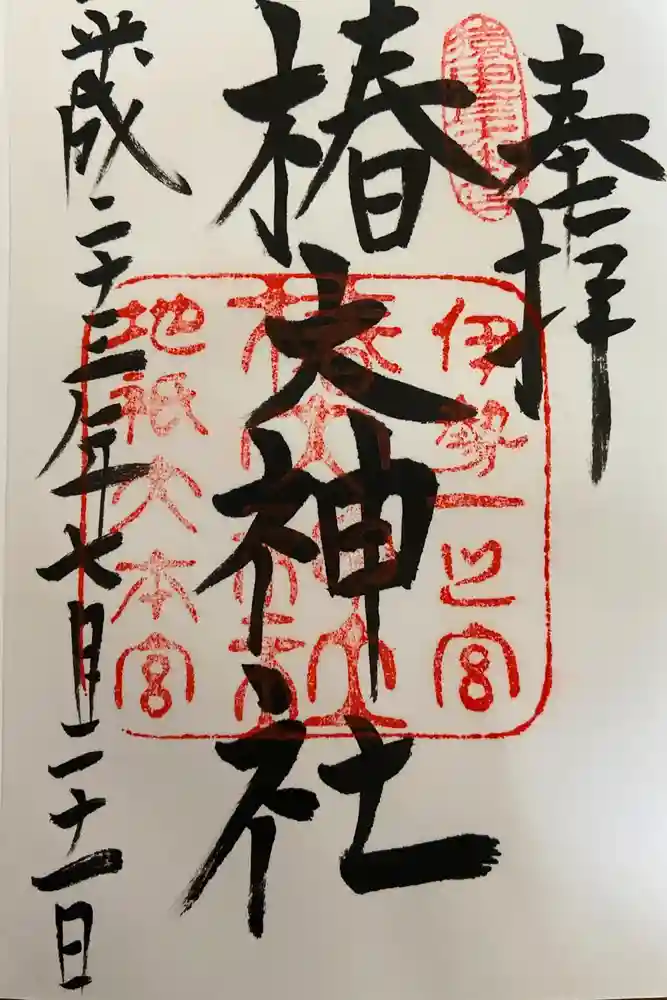 奉拝
伊勢一之宮
椿大神社
地祇大本宮
平成二十三年七月二十一日